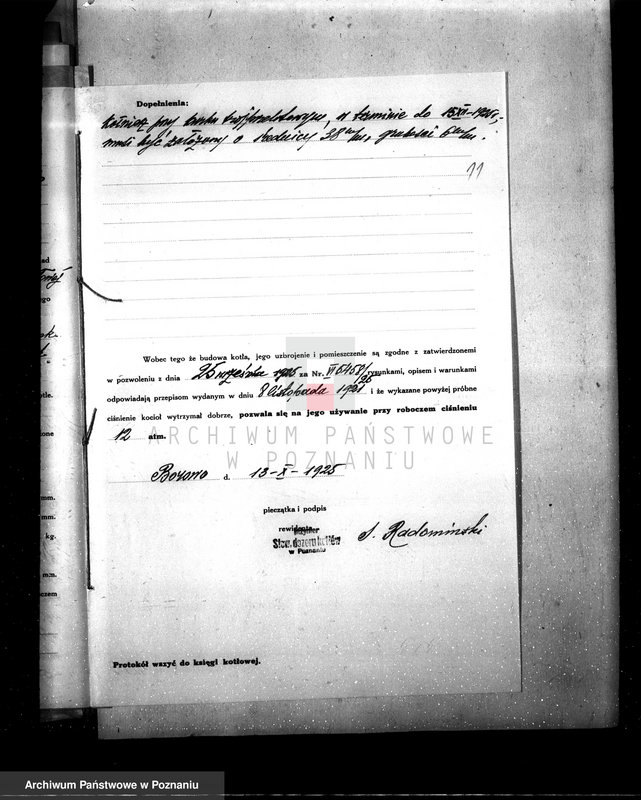 Dopełnienia:
w terminie do 15 XII-1925 r.,
musi być założony o średnicy 38 m/m, grubości 6 m/m.
11
Wobec tego że budowa kotła, jego uzbrojenie i pomieszczenie są zgodne z zatwierdzonemi
w pozwoleniu z dnia 25 września 1925 za Nr. VI 6458/25 rysunkami, opisem i warunkami
odpowiadają przepisom wydanym w dniu 8 listopada 1921 i że wykazane powyżej próbne
ciśnienie kocioł wytrzymał dobrze, pozwala się na jego używanie przy roboczem ciśnieniu
12 atm.
ARCHIWUM PAŃSTWOWE
W POZNANIU
Borowo d. 13-X-1925
pieczątka i podpis
rewidenta
Inżynier
Stow. dozoru kotłów
w Poznaniu
Radomiński
Protokół wszyć do księgi kotłowej.
mm.
mm.
kg.
m/m.
Archiwum Państwowe w Poznaniu